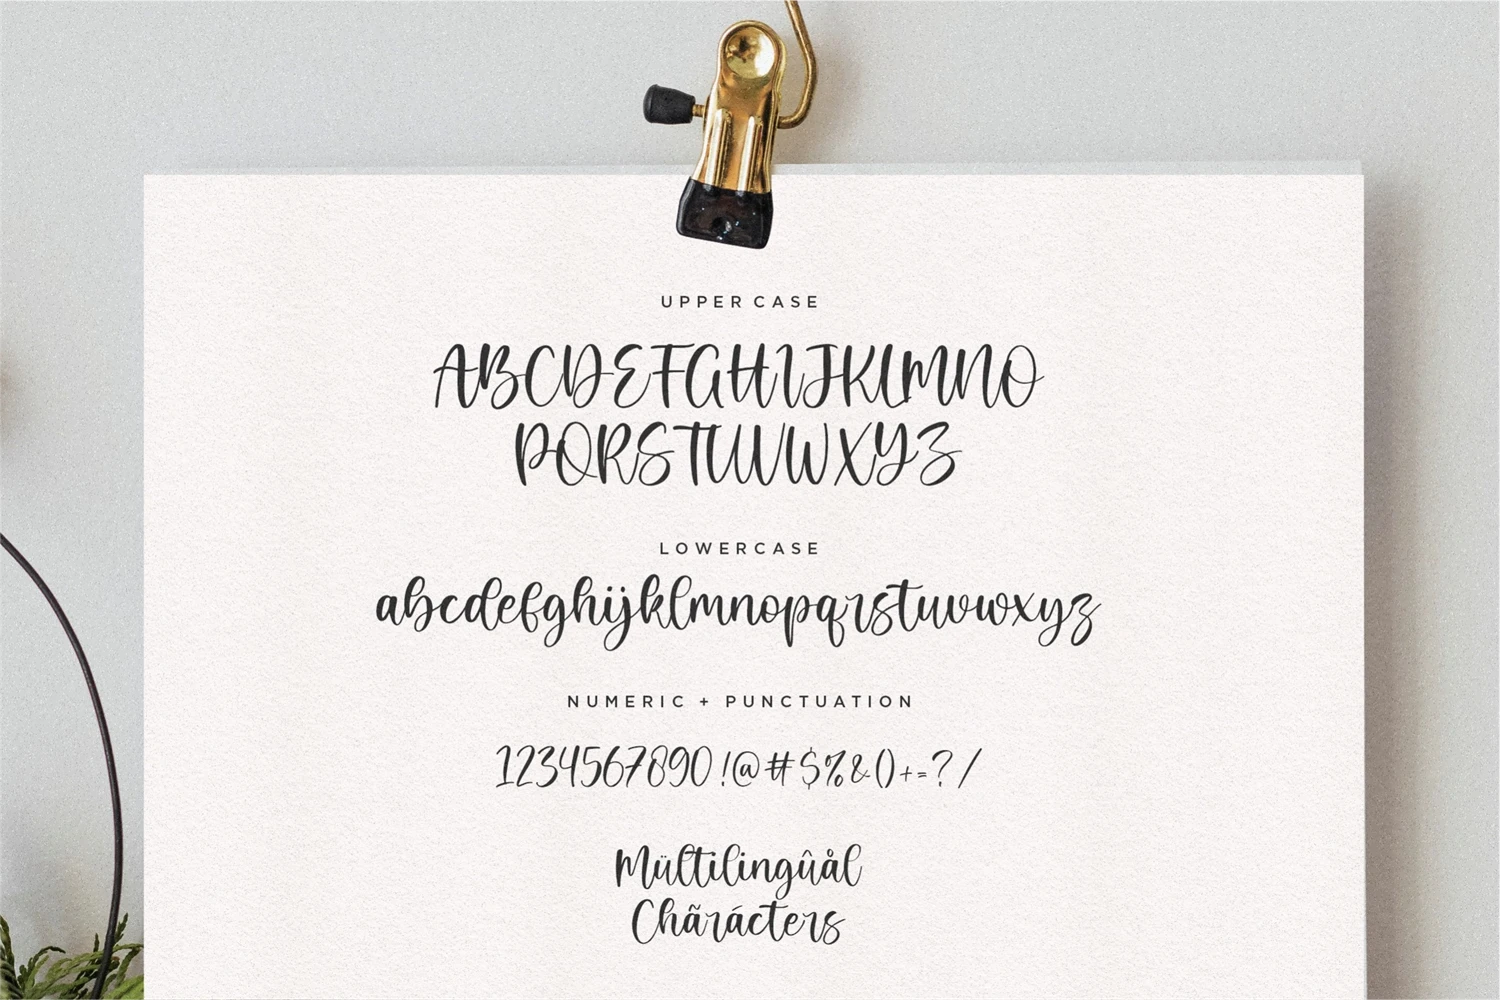 UPPER CASE
ABCDEFGHIJKLMNO
PQRSTUVWXYZ
LOWERCASE
abcdefghijklmnopqrstuvwxyz
NUMERIC + PUNCTUATION
1234567890!@#$%&()+=?/
Múltilingûål
Chãrácters